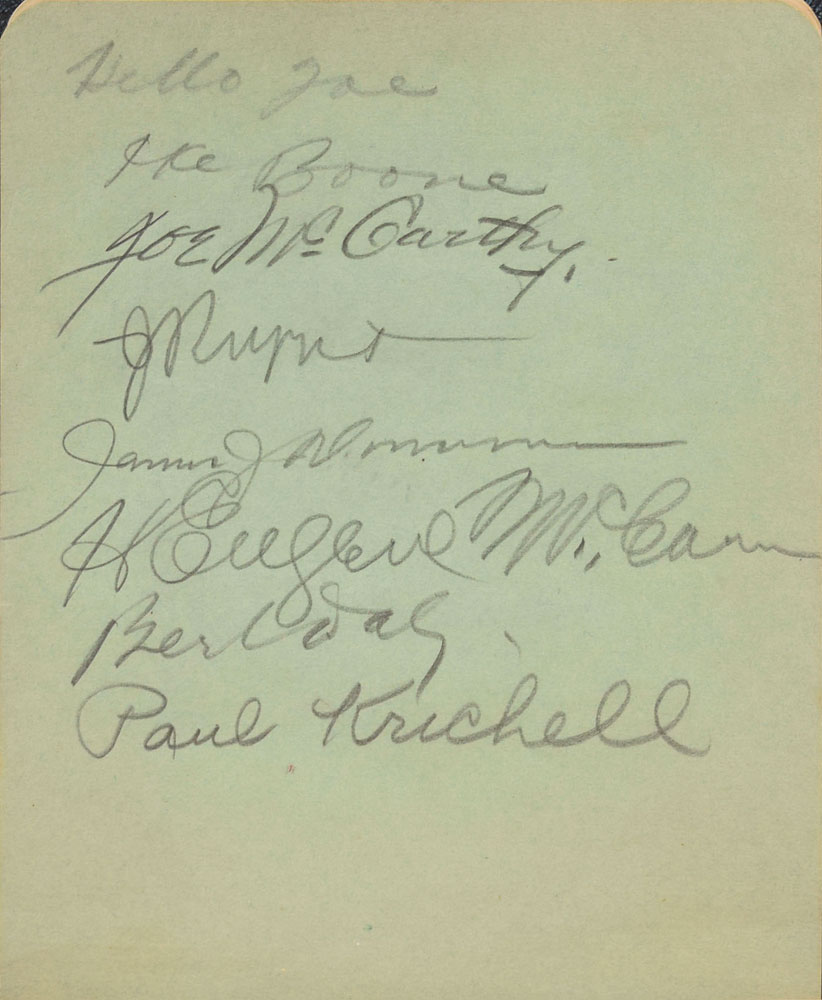 Hello Joe
Ike Boone
Joe McCarthy.
J Ruppert
James J
H Eugene McCann
Bert Daly
Paul Krichell